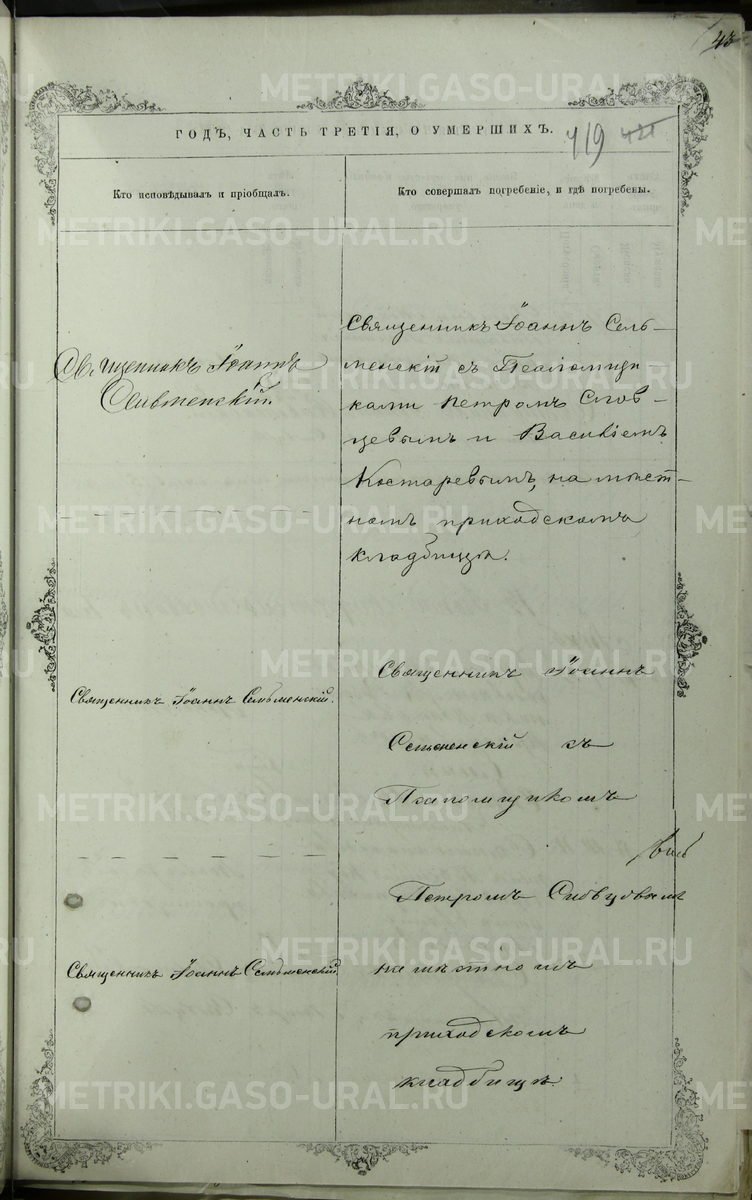 43
METRIKI.GASO-URAL.RU
ГОДЪ, ЧАСТЬ ТРЕТІЯ, О УМЕРШИХЪ.
419
Кто исповѣдывалъ и пріобщалъ.
Кто совершалъ погребеніе, и гдѣ погребены.
Священникъ Іоаннъ
Сельменскій.
Священникъ Іоаннъ Сель-
менскій съ Псаломщи-
ками Петромъ Слов-
цевымъ и Василіемъ
Костаревымъ, на мѣст-
номъ приходскомъ
кладбищѣ.
Священникъ Іоаннъ Сельменскій.
Священникъ Іоаннъ
Сельменскій съ
Псаломщикомъ
Петромъ Словцовымъ
на мѣстномъ
приходскомъ
кладбищѣ.
Священникъ Іоаннъ Сельменскій